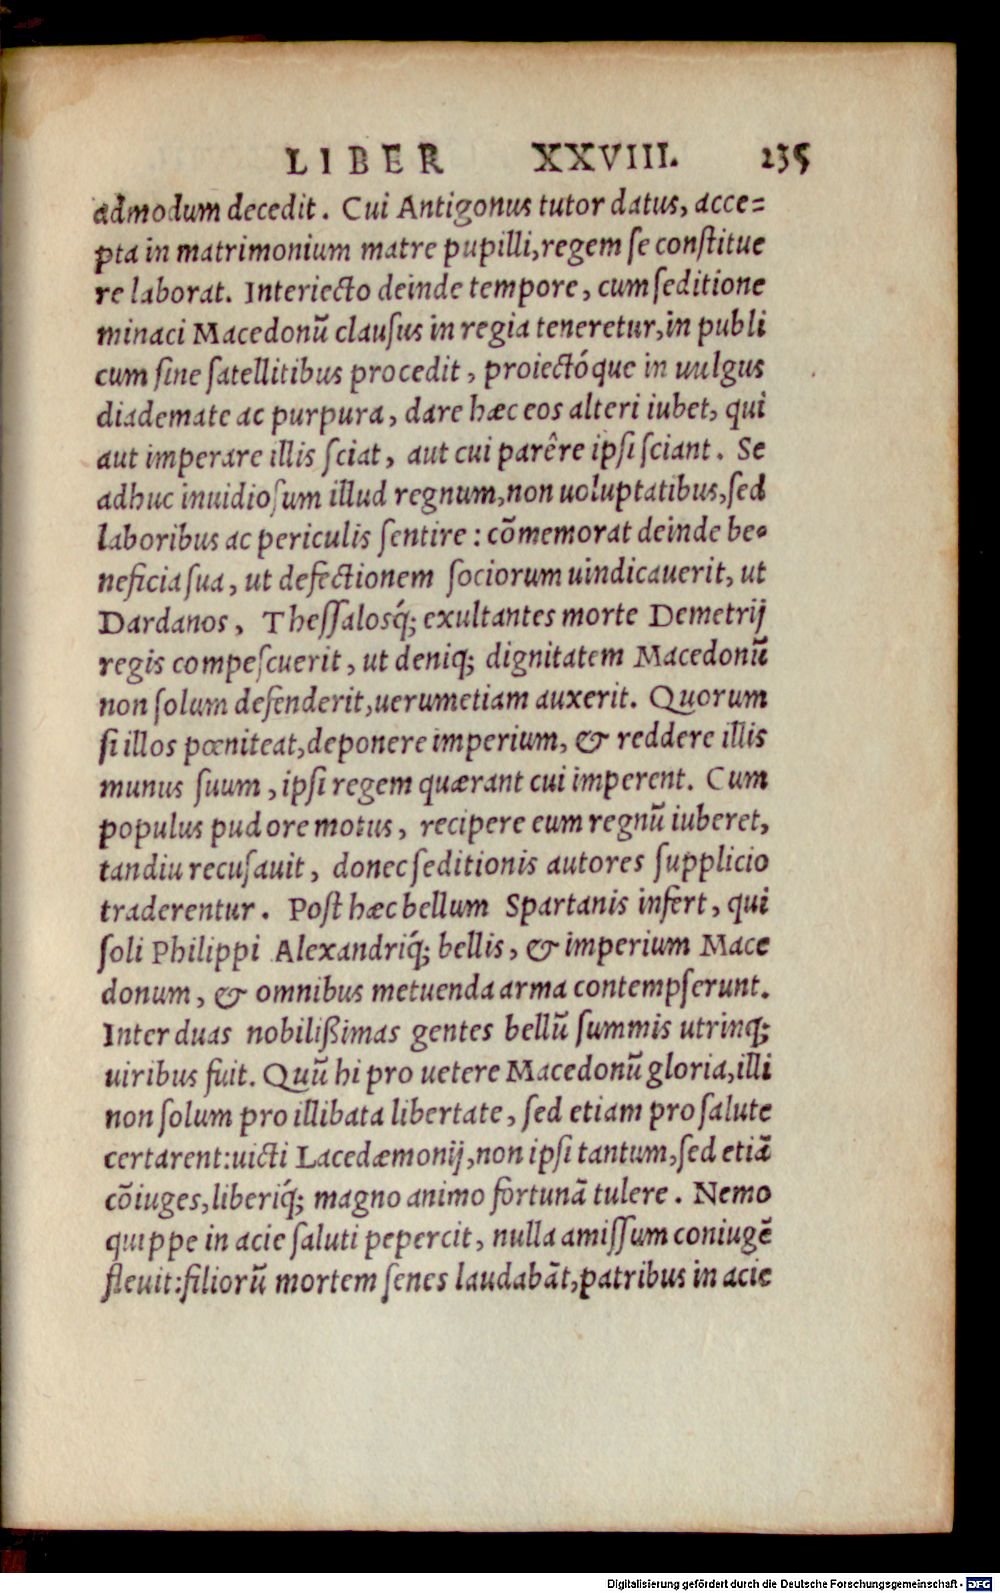 LIBER XXVIII. 235
admodum decedit. Cui Antigonus tutor datus, acce=
pta in matrimonium matre pupilli, regem se constitue
re laborat. Interiecto deinde tempore, cum seditione
minaci Macedonũ clausus in regia teneretur, in publi
cum sine satellitibus procedit, proiectóque in uulgus
diademate ac purpura, dare hæc eos alteri iubet, qui
aut imperare illis sciat, aut cui parêre ipsi sciant. Se
adhuc inuidiosum illud regnum, non uoluptatibus, sed
laboribus ac periculis sentire: cõmemorat deinde be=
neficia sua, ut defectionem sociorum uindicauerit, ut
Dardanos, Thessalosq́; exultantes morte Demetrij
regis compescuerit, ut deniq; dignitatem Macedonũ
non solum defenderit, uerumetiam auxerit. Quorum
si illos pœniteat, deponere imperium, & reddere illis
munus suum, ipsi regem quærant cui imperent. Cum
populus pudore motus, recipere eum regnũ iuberet,
tandiu recusauit, donec seditionis autores supplicio
traderentur. Post hæc bellum Spartanis infert, qui
soli Philippi Alexandriq́; bellis, & imperium Mace
donum, & omnibus metuenda arma contempserunt.
Inter duas nobilißimas gentes bellũ summis utrinq;
uiribus fuit. Quũ hi pro uetere Macedonũ gloria, illi
non solum pro illibata libertate, sed etiam pro salute
certarent: uicti Lacedæmonij, non ipsi tantum, sed etiã
cõiuges, liberiq́; magno animo fortunã tulere. Nemo
quippe in acie saluti pepercit, nulla amissum coniugẽ
fleuit: filiorũ mortem senes laudabãt, patribus in acie
Digitalisierung gefördert durch die Deutsche Forschungsgemeinschaft - DFG